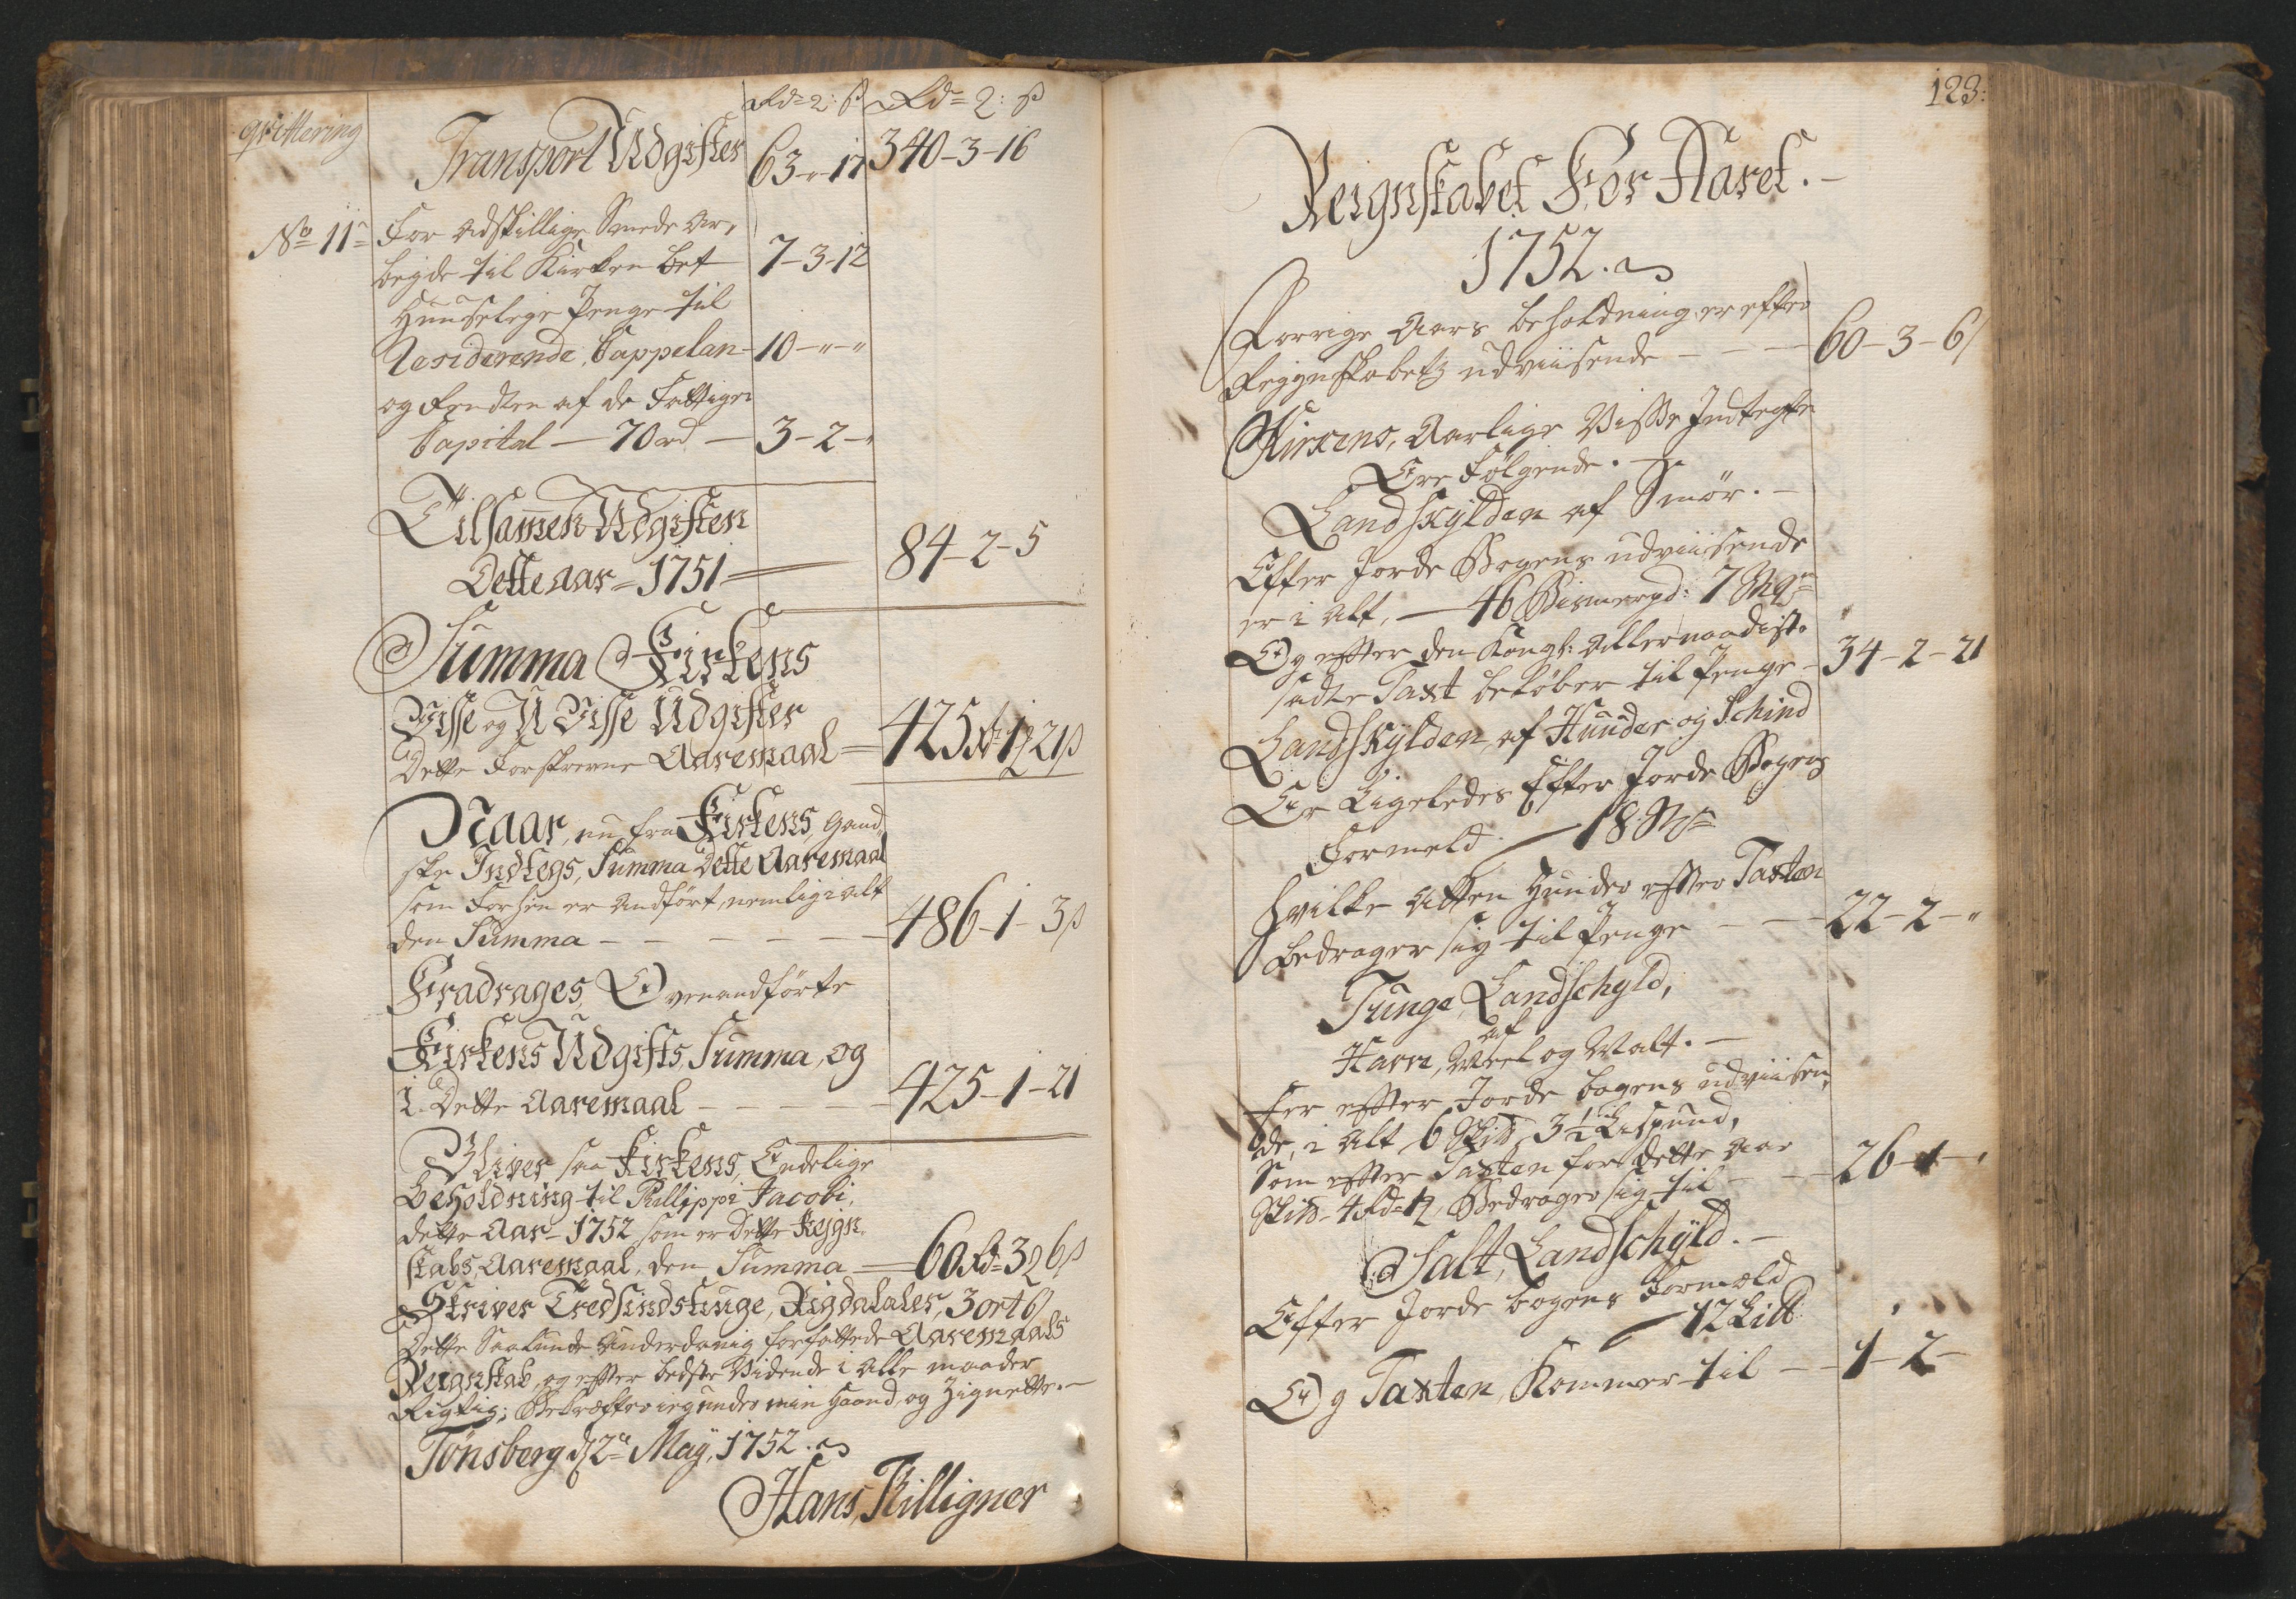 qvittering
Rd= 2: ß Rd= 2: ß
Transport Udgifter 63-"-17 340-3-16
No 11= For adskillige Smede Ar,
beyde til Kirken bet 7-3-12
Huuseleye Penge til
Residerende Cappelan 10-"-"
og Rendten af de Fattiges
Capital - 70 rd - 3-2-"
Tilsamen Udgiften
Dette aar = 1751 84-2-5
Summa Kirkens
Visse og U Visse Udgifter
Dette Forskrevne Aaremaal = 425 Rd 1 2 21 ß
Naar, nu fra Kirkens, Gand,
ske Indtegs, Summa Dette Aaremaal
som Forhen er Andført, nemlig i alt
den Summa - - - - - 486-1-3 ß
Fradrages, Ovenandførte
Kirkens Udgifts, Summa, og
i Dette Aaremaal - - - 425-1-21
Bliver saa Kirkens, Endelige
Beholdning til Phillippi Jacobi,
dette Aar - 1752, som er Dette Regn
skabs, Aaremaal, den Summa = 60 Rd= 3 2 6 ß
Skriver Tredsindstiuge, Rigdalaler, 3 ort 6 ß
Dette Saalunde Underdanig forfattede Aaremaals
Reignskab, og efter bedste Vidende i Alle maader
Rigtig; Bekræfter ieg under min Haand, og Zignette.-
Tönsberg d 2e May, 1752.
Hans, Killigner
123:
Reignskabet For Aaret.-
1752.
Forrige Aars beholdning er efter
Regnskabets udviisende - - - 60-3-6 ß
Kirkens, Aarlige Visse Indtegte
Ere Følgende.-
Landskylden af Smör.-
Efter Jorde Bogens udviisende
er i Alt, - 46 Bismerpd: 7 Mg=
Og efter den Kongl: Allernaadist
sadte Taxt beløber til Penge - 34-2-21
Landskylden, af Huuder og Schind
Er Ligeledes Efter Jorde Bogens
Formeld - 18
Hvilke Atten Huuder efter Taxten
bedrager sig til Penge - - 22-2-"
Tunge, Landschyld,
af
Harre, Meel og Malt.-
Er efter Jorde bogens udviisen,
de, i Alt 6 Skid 3½ Lispund,
Som efter Taxten for Dette Aar
Skid - 4 Rd= 1 2, Bedrager sig til - - 26-1-
Salt, Landschyld.-
Efter Jorde bogens Formeld
- 12
Og Taxten, Kommer til - - 1-2-